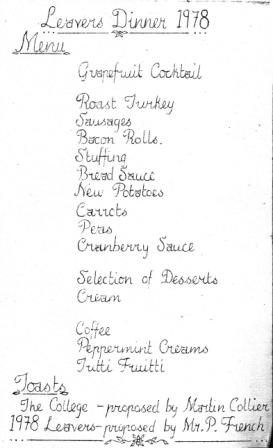 Leavers Dinner 1978
Menu
Grapefruit Cocktail
Roast Turkey
Sausages
Bacon Rolls.
Stuffing
Bread Sauce
New Potatoes
Carrots
Peas
Cranberry Sauce
Selection of Desserts
Cream
Coffee
Peppermint Creams
Tutti Fruitti
Toasts
The College - proposed by Martin Collier
1978 Leavers - proposed by Mr. P. French